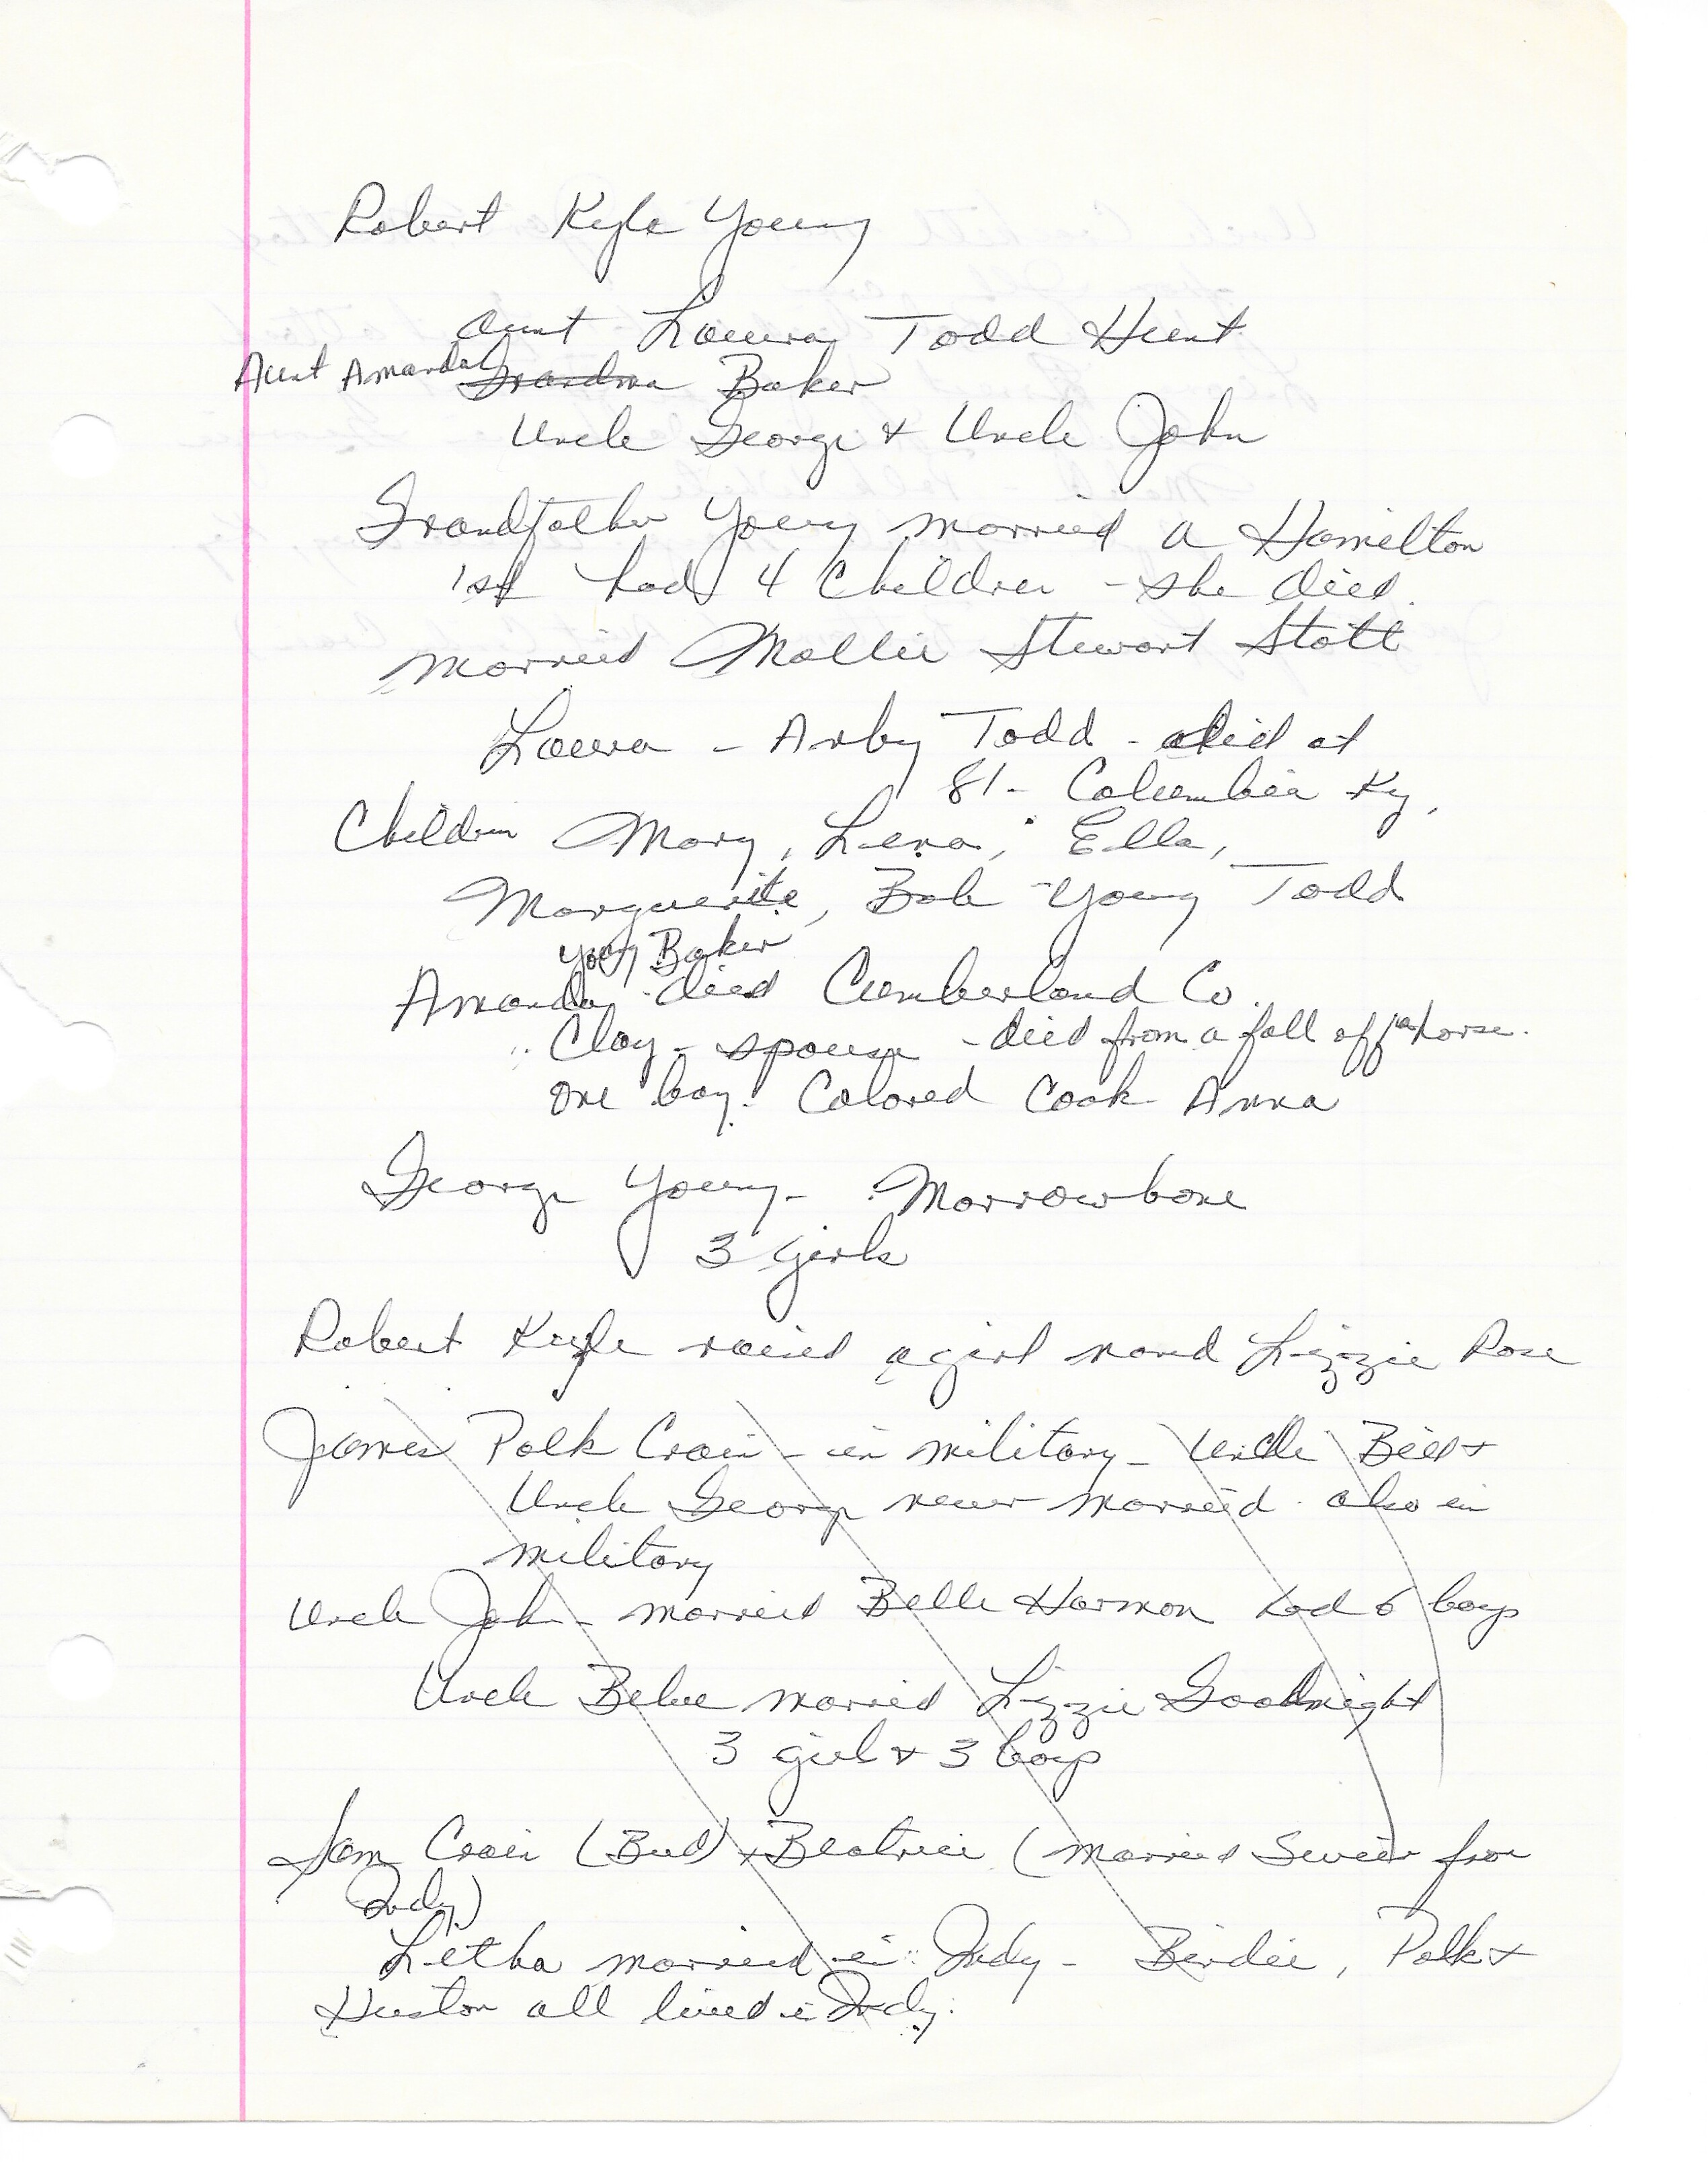 Robert Kyle Young
Aunt Laura Todd Hunt
Aunt Amanda Grandma Baker
Uncle George & Uncle John
Grandfather Young married a Hamilton
1st had 4 children - she died.
married Mollie Stewart Stott
Laura - Arby Todd - died at
81 - Columbia Ky.
Children Mary, Lena, Ella,
Marguerite, Bob Young Todd
Young Baker
Amanda - died Cumberland Co.
Clay - spouse - died from a fall off a horse.
One boy. Colored Cook Anna
George Young - Marrowbone
3 girls
Robert Kyle raised a girl named Lizzie Rose
James Polk Crain - in military - Uncle Bill &
Uncle George never married. also in
military
Uncle John - married Belle Harmon had 6 boys
Uncle married Lizzie Goodnight
3 girls & 3 boys
Sam Crain (Bud) & Beatrice (married from
Indy)
Letha married in Indy - Birdie, Polk &
Huston all lived in Indy.